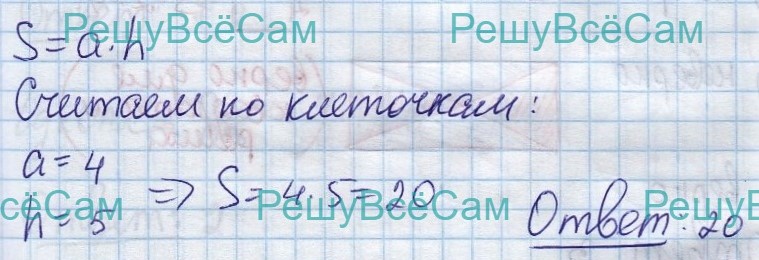 РешуВсёСам РешуВсёСам
S = a · h
Считаем по клеточкам:
a = 4
h = 5
=> S = 4 · 5 = 20
сёСам РешуВсёСам РешуВсёСам
Ответ: 20